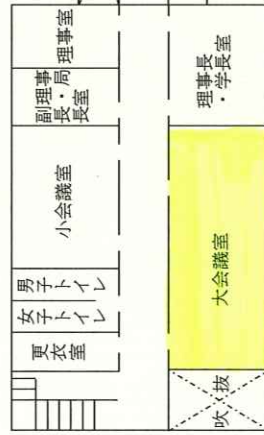 理事室
副理事
長・局
長室
小会議室
男子トイレ
女子トイレ
更衣室
理事長
・学長室
大会議室
吹抜